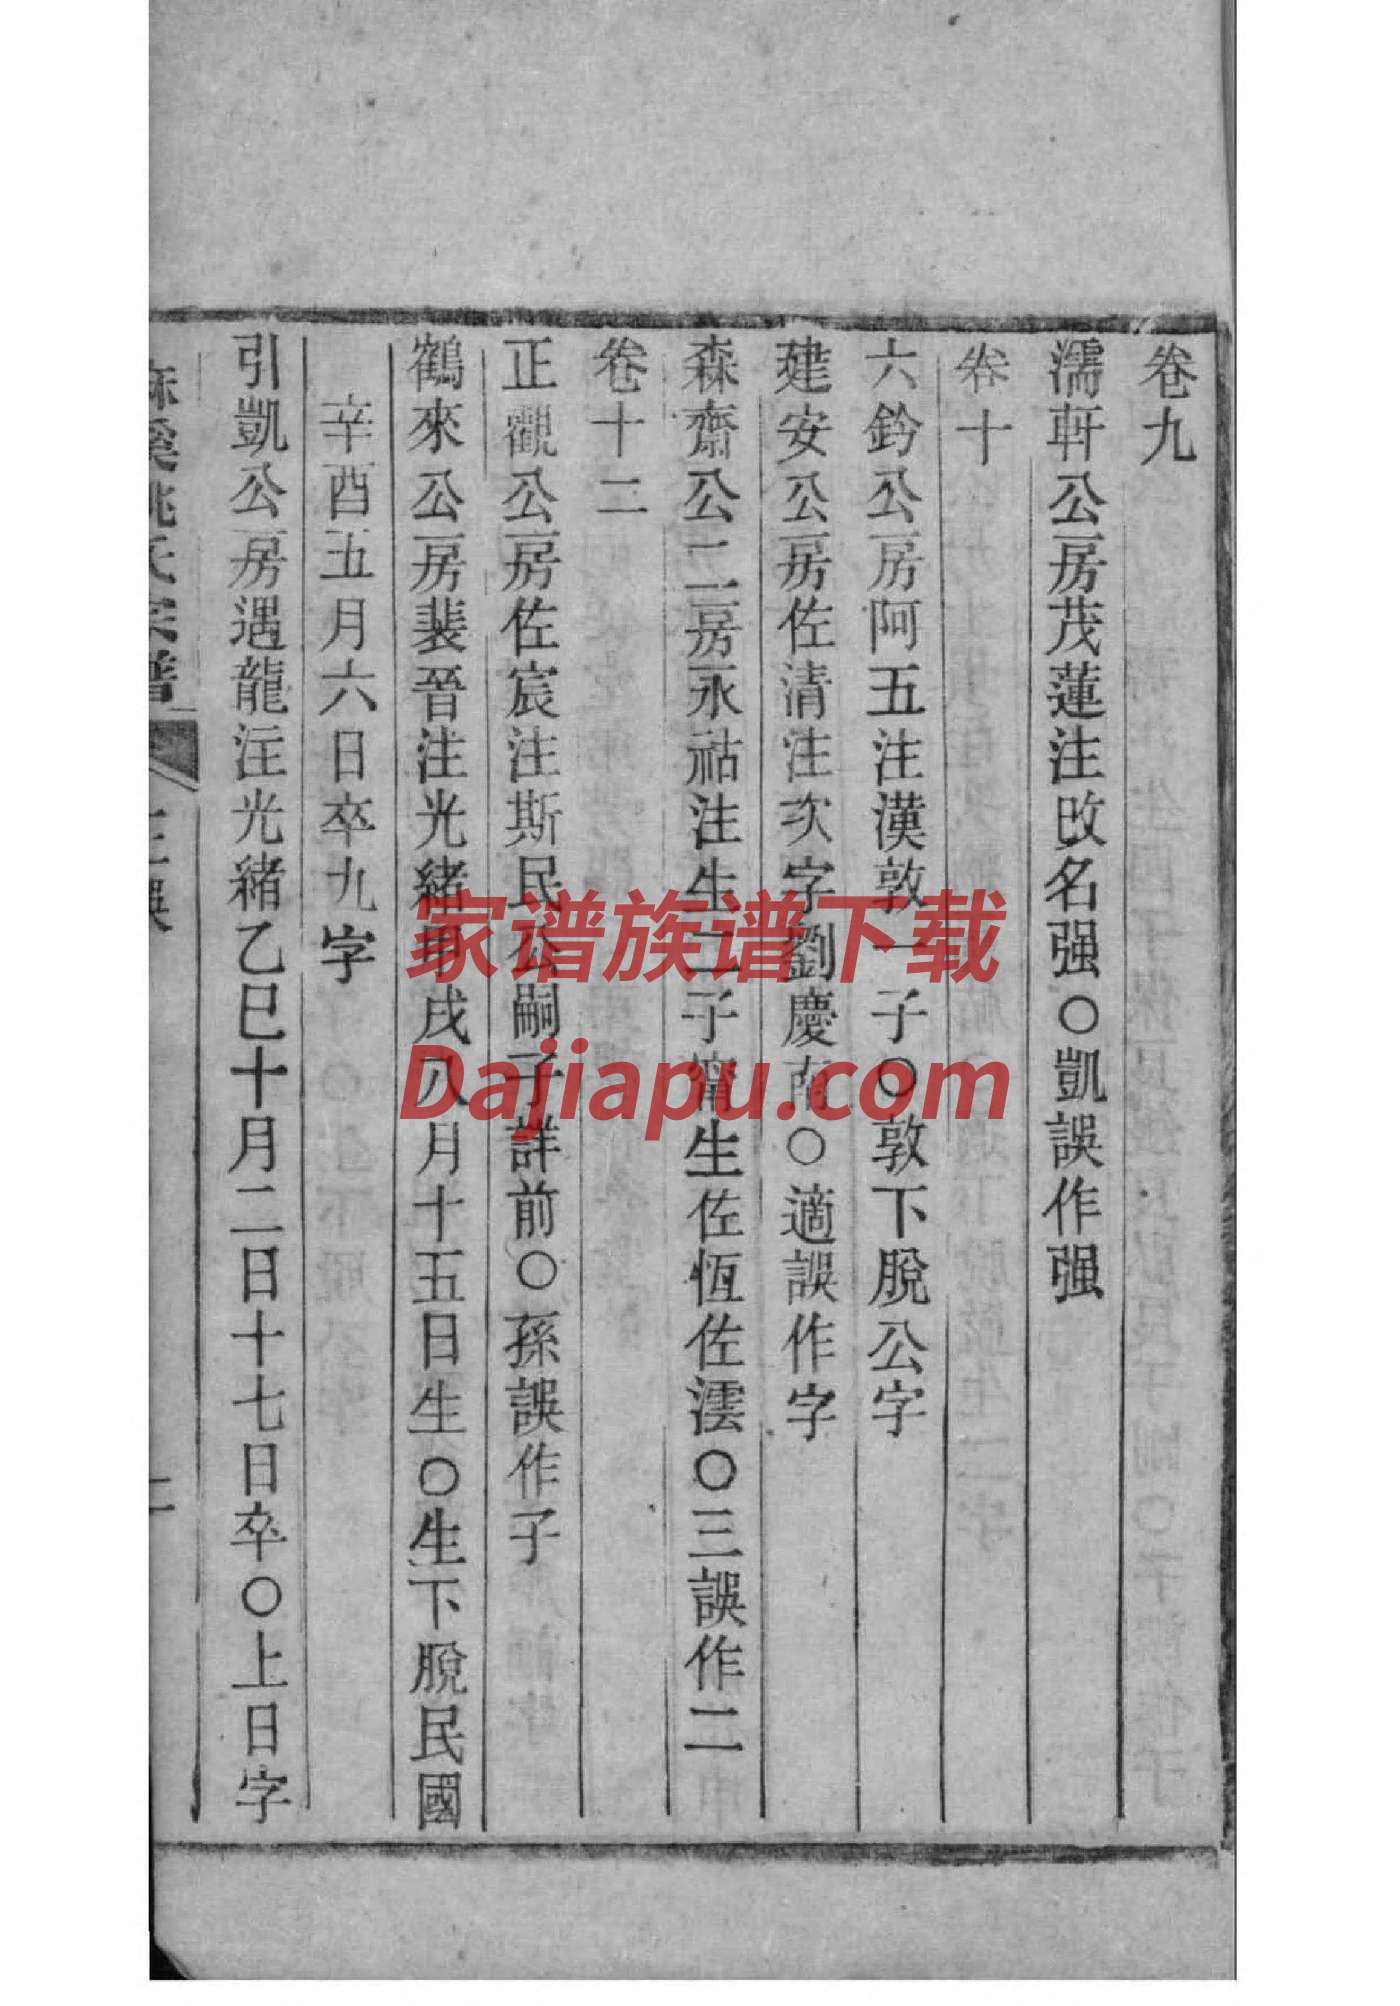 卷九
濡軒公房茂蓮注改名强〇凱誤作强
卷十
六鈐公房阿五注漢敦一子〇敦下脫公字
建安公房佐清注次字劉慶南〇適誤作字
森齋公二房永祜注生二子甯生佐恆佐澐〇三誤作二
卷十二
正觀公房佐宸注斯民公嗣子詳前〇孫誤作子
鶴來公房裴晉注光緒甲戌八月十五日生〇生下脫民國
辛酉五月六日卒九字
引凱公房遇龍注光緒乙巳十月二日十七日卒〇上日字
麻溪姚氏宗譜
正誤
家谱族谱下载
Dajiapu.com